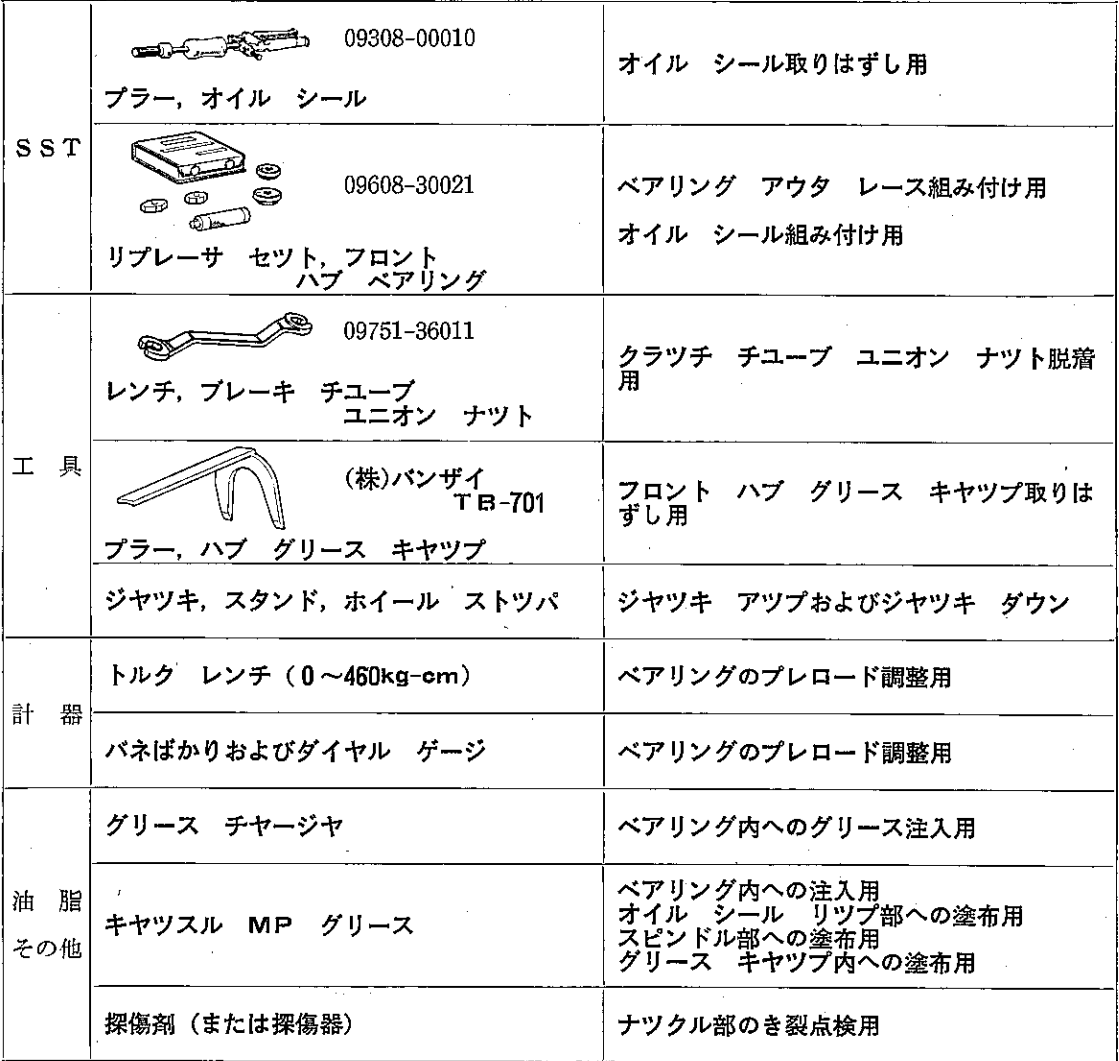 SST
09308-00010
プラー，オイル　シール
オイル　シール取りはずし用
09608-30021
リプレーサ　セツト，フロント
ハブ　ベアリング
ベアリング　アウタ　レース組み付け用
オイル　シール組み付け用
工　具
09751-36011
レンチ，ブレーキ　チユーブ
ユニオン　ナツト
クラツチ　チユーブ　ユニオン　ナツト脱着
用
(株)バンザイ
TB-701
プラー，ハブ　グリース　キヤツプ
フロント　ハブ　グリース　キヤツプ取りは
ずし用
ジヤツキ，スタンド，ホイール　ストツパ
ジヤツキ　アツプおよびジヤツキ　ダウン
計　器
トルク　レンチ（0～460kg-cm）
ベアリングのプレロード調整用
バネばかりおよびダイヤル　ゲージ
ベアリングのプレロード調整用
油　脂
その他
グリース　チヤージヤ
ベアリング内へのグリース注入用
キヤツスル　MP　グリース
ベアリング内への注入用
オイル　シール　リツプ部への塗布用
スピンドル部への塗布用
グリース　キヤツプ内への塗布用
探傷剤（または探傷器）
ナツクル部のき裂点検用